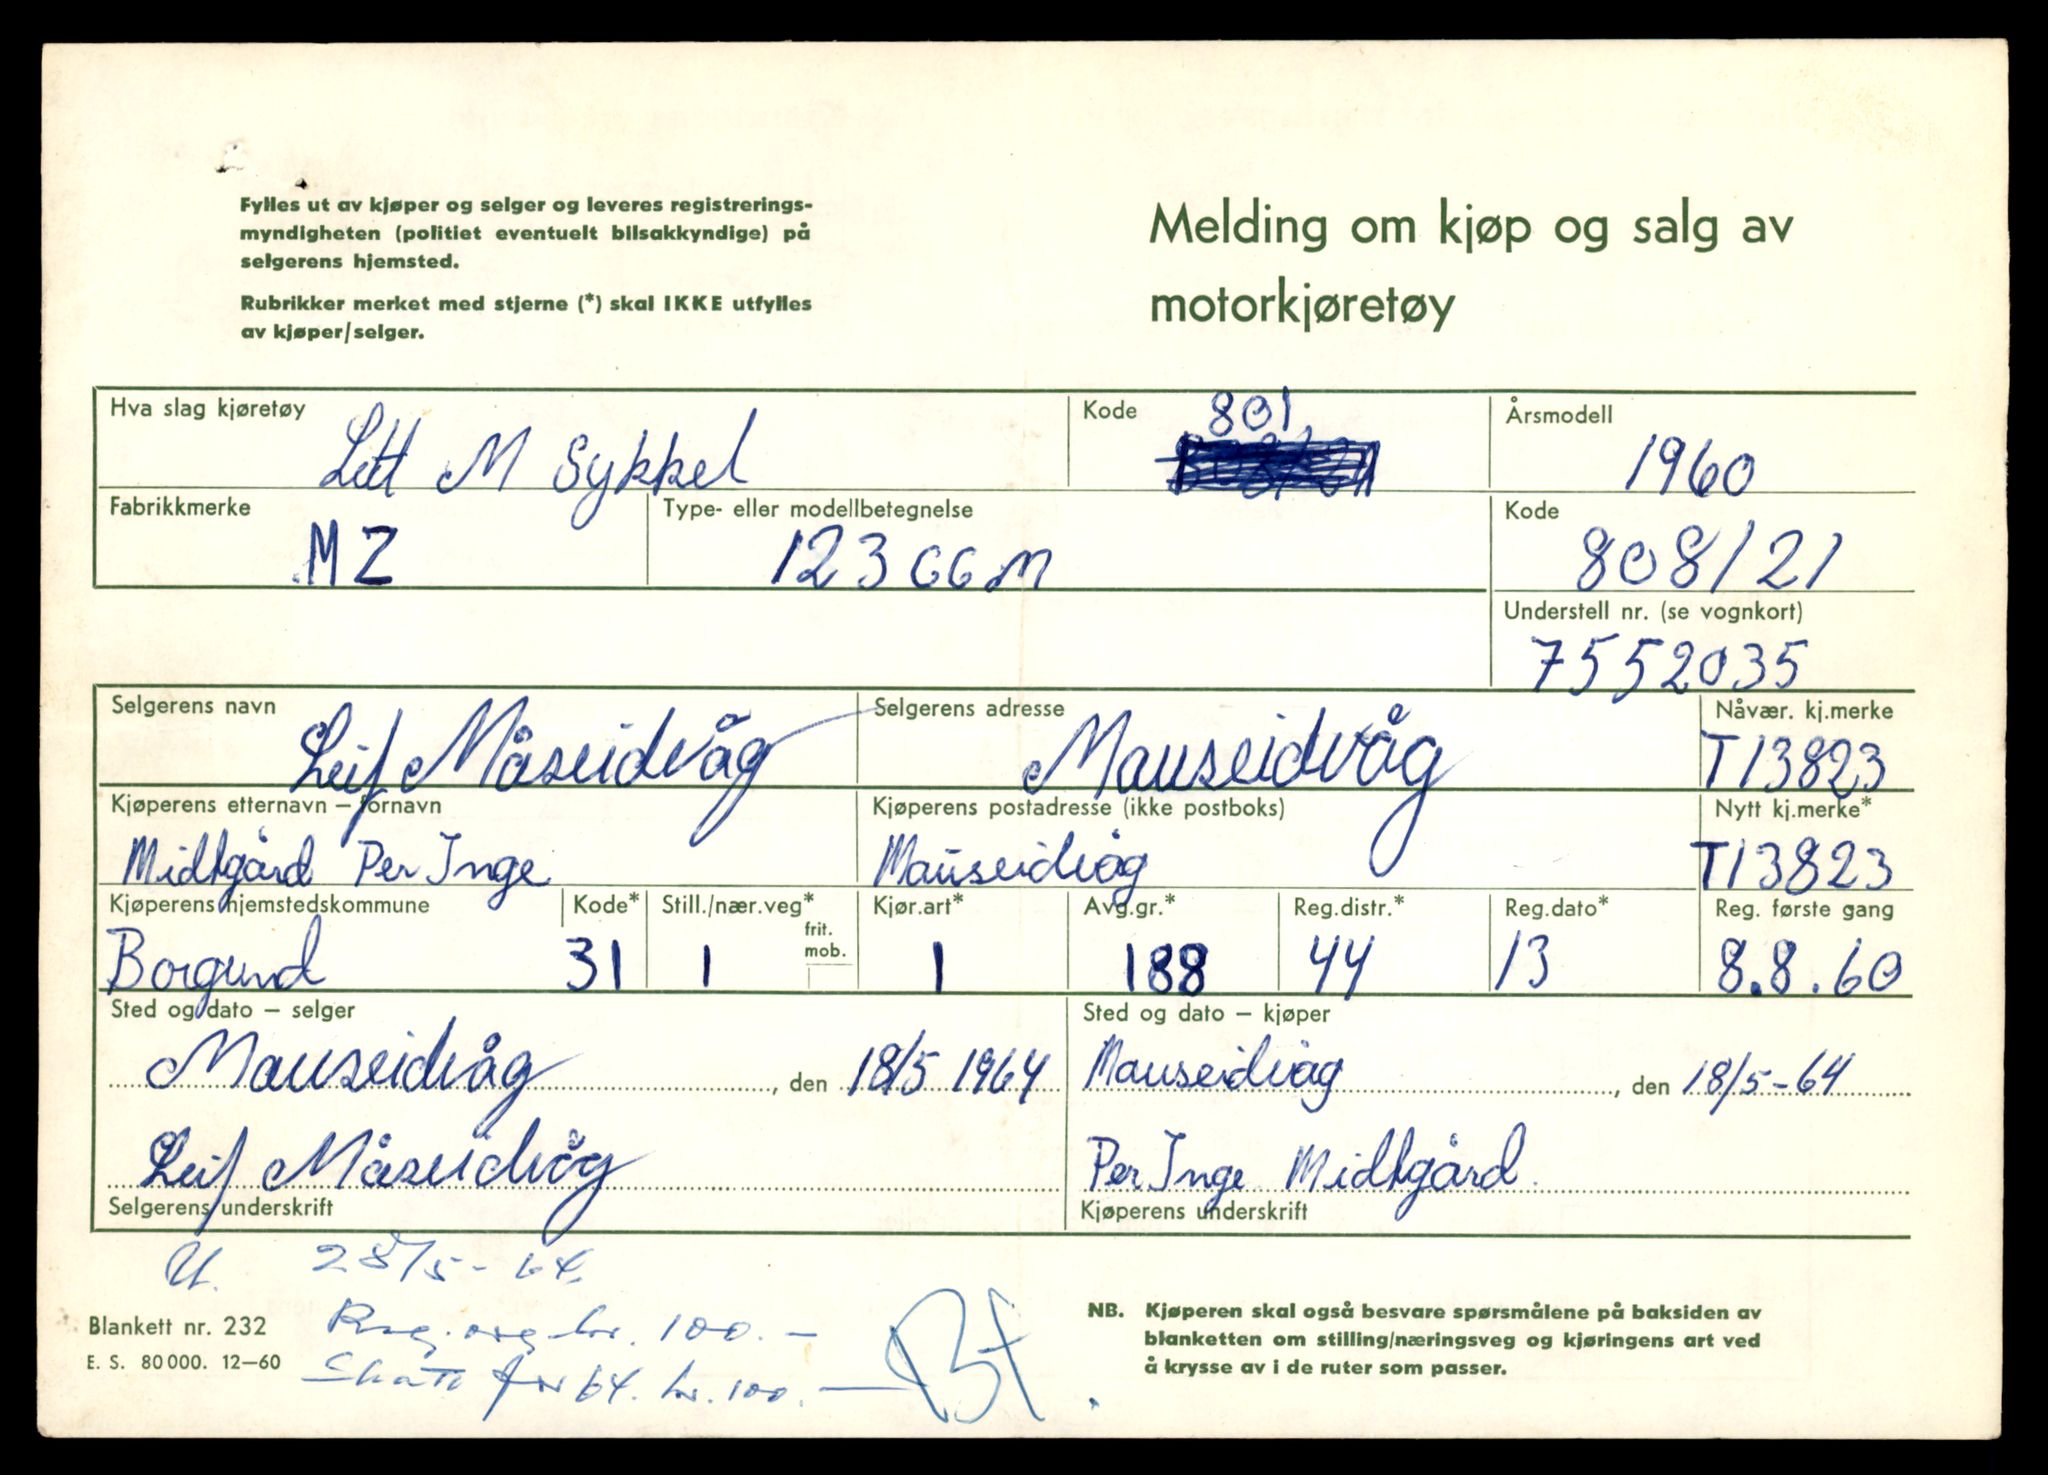 Fylles ut av kjøper og selger og leveres registrerings-
myndigheten (politiet eventuelt bilsakkyndige) på
selgerens hjemsted.
Rubrikker merket med stjerne (*) skal IKKE utfylles
av kjøper/selger.
Melding om kjøp og salg av
motorkjøretøy
Hva slag kjøretøy
Lett M Sykkel
Kode
801
Årsmodell
1960
Fabrikkmerke
MZ
Type- eller modellbetegnelse
123 ccm
Kode
808/21
Understell nr. (se vognkort)
7552035
Selgerens navn
Leif Måseidvåg
Selgerens adresse
Mauseidvåg
Nåvær. kj.merke
T13823
Kjøperens etternavn – fornavn
Midtgård Per Inge
Kjøperens postadresse (ikke postboks)
Mauseidvåg
Nytt kj.merke*
T13823
Kjøperens hjemstedskommune
Borgund
Kode*
31
Still./nær.veg*
frit.
mob.
1
Kjør.art*
1
Avg.gr.*
188
Reg.distr.*
44
Reg.dato*
13
Reg. første gang
8.8.60
Sted og dato – selger
Mauseidvåg, den 18/5 1964
Leif Måseidvåg
Selgerens underskrift
Sted og dato – kjøper
Mauseidvåg, den 18/5-64
Per Inge Midtgård
Kjøperens underskrift
U. 28/5-64.
Reg. avg. kr. 100.-
for 64. kr. 100.-
Blankett nr. 232
E. S. 80 000. 12–60
NB. Kjøperen skal også besvare spørsmålene på baksiden av
blanketten om stilling/næringsveg og kjøringens art ved
å krysse av i de ruter som passer.